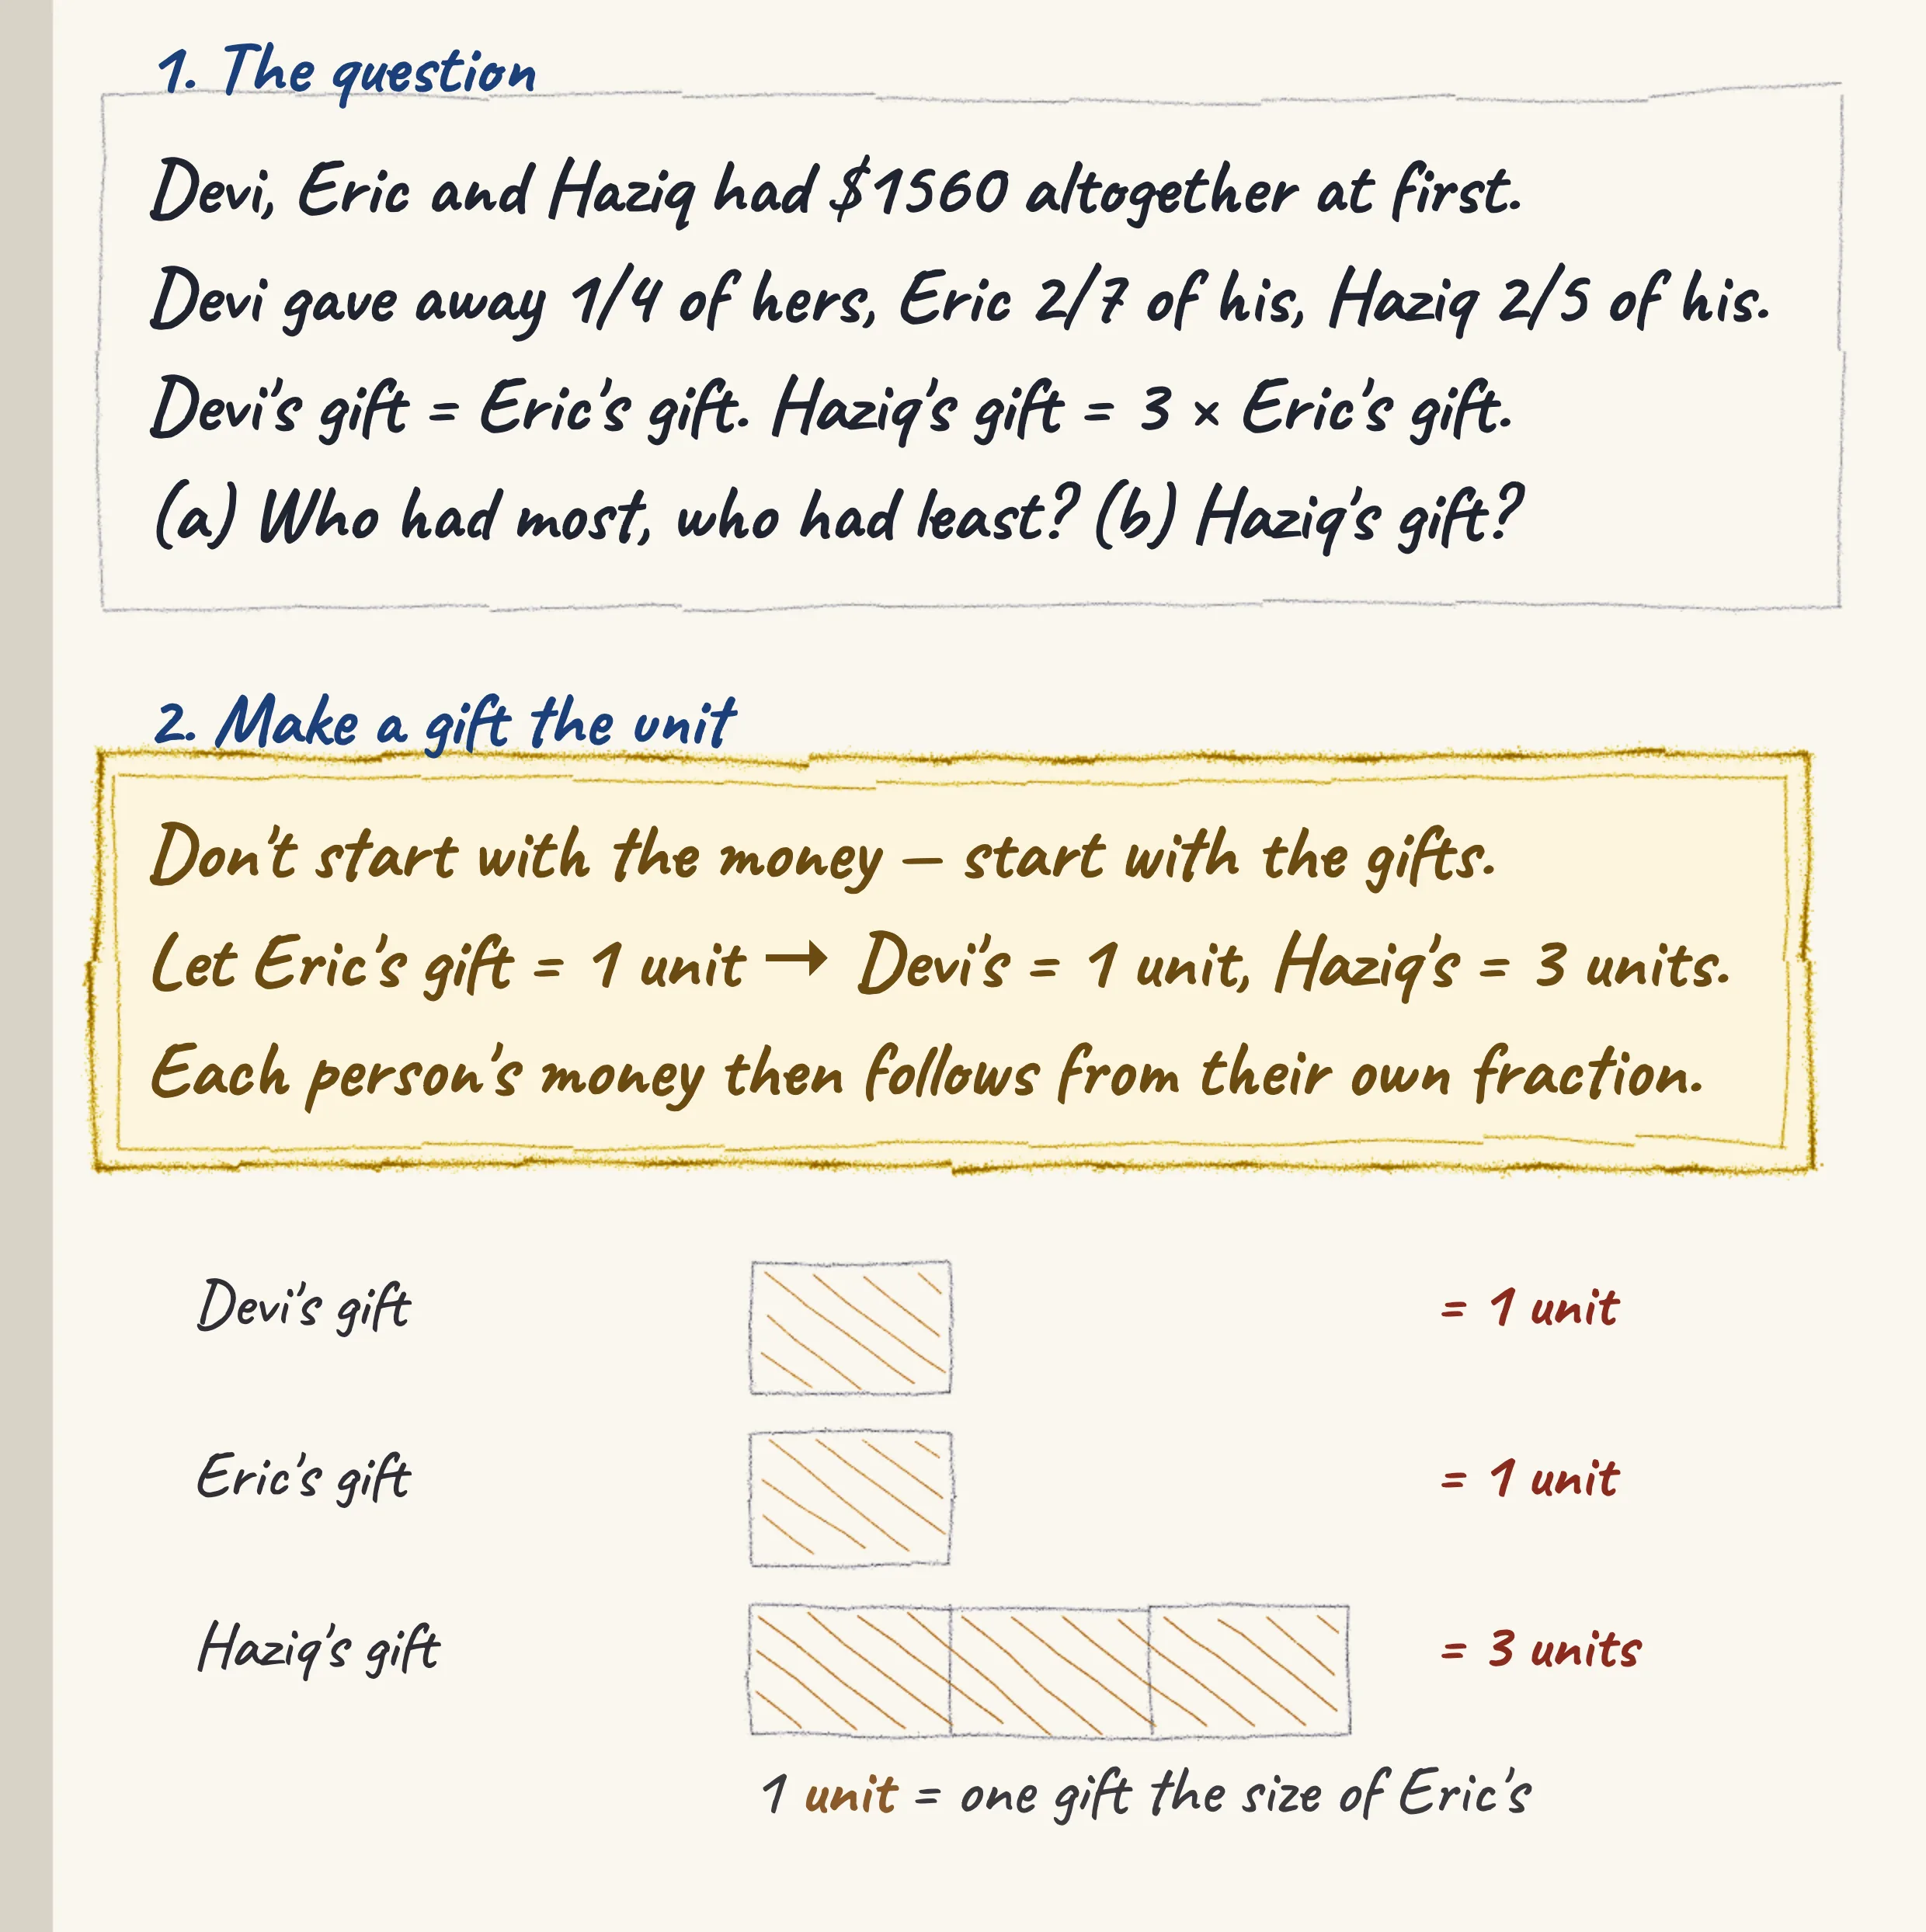 1. The question
Devi, Eric and Haziq had $1560 altogether at first.
Devi gave away 1/4 of hers, Eric 2/7 of his, Haziq 2/5 of his.
Devi's gift = Eric's gift. Haziq's gift = 3 × Eric's gift.
(a) Who had most, who had least? (b) Haziq's gift?
2. Make a gift the unit
Don't start with the money — start with the gifts.
Let Eric's gift = 1 unit → Devi's = 1 unit, Haziq's = 3 units.
Each person's money then follows from their own fraction.
Devi's gift = 1 unit
Eric's gift = 1 unit
Haziq's gift = 3 units
1 unit = one gift the size of Eric's